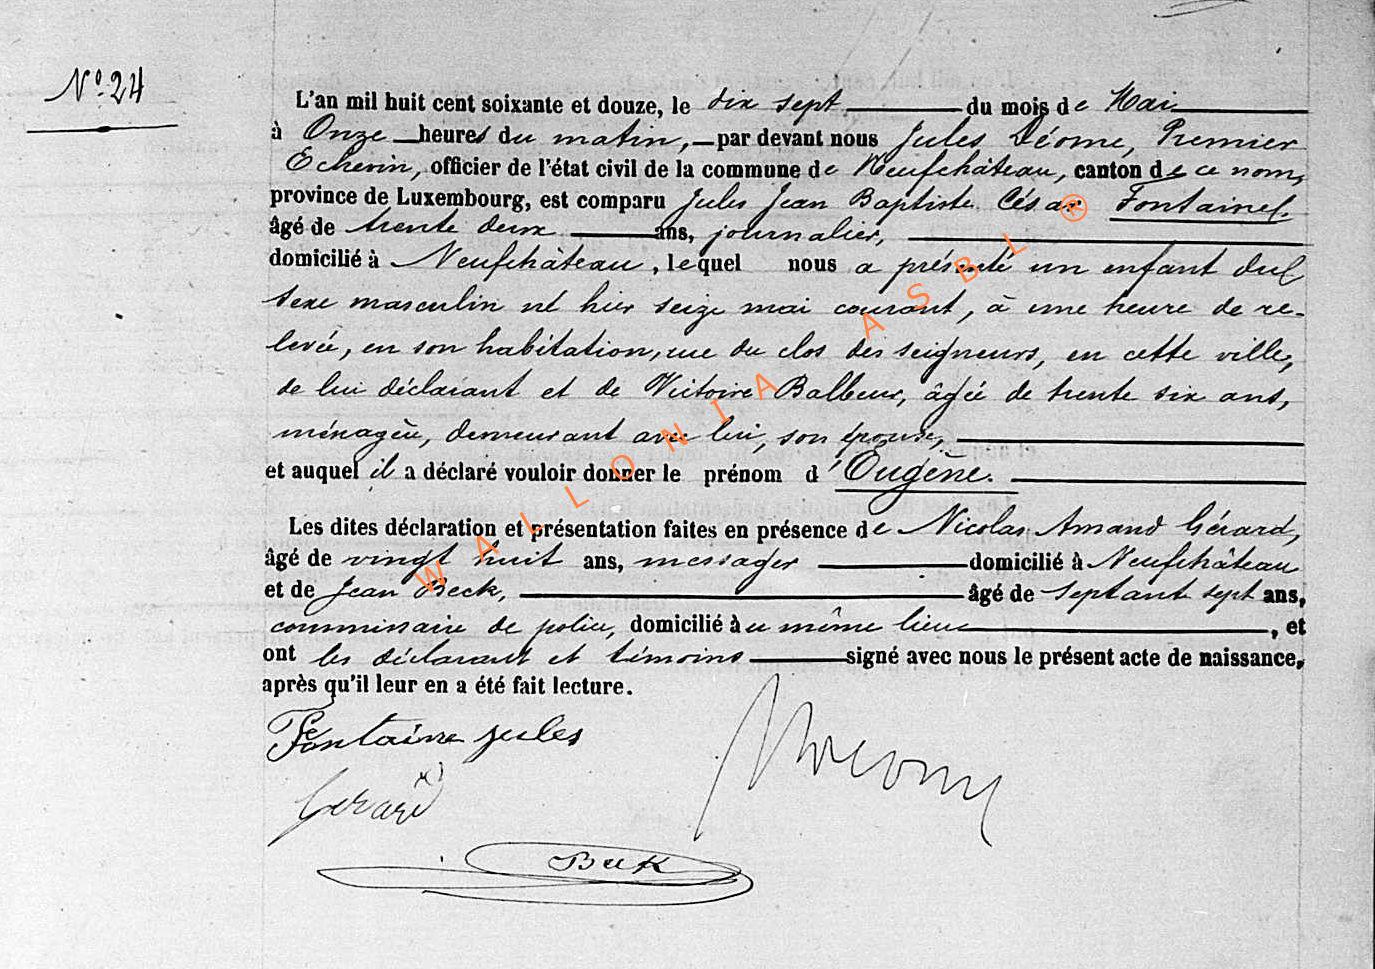 N° 24
L'an mil huit cent soixante et douze, le dix sept du mois de Mai
à Onze heures du matin, par devant nous Jules Déome, Premier
Echevin, officier de l'état civil de la commune de Neufchâteau, canton de ce nom,
province de Luxembourg, est comparu Jules Jean Baptiste César Fontaine
âgé de trente deux ans, journalier,
domicilié à Neufchâteau, lequel nous a présenté un enfant du
sexe masculin né hier seize mai courant, à une heure de re-
levée, en son habitation, rue du clos des seigneurs, en cette ville,
de lui déclarant et de Victoire Balbeur, âgée de trente six ans,
ménagère, demeurant avec lui, son épouse,
et auquel il a déclaré vouloir donner le prénom d'Eugène.
Les dites déclaration et présentation faites en présence de Nicolas Amand Gérard,
âgé de vingt huit ans, messager domicilié à Neufchâteau
et de Jean Beck, âgé de septante sept ans,
commissaire de police, domicilié au même lieu, et
ont les déclarant et témoins signé avec nous le présent acte de naissance,
après qu'il leur en a été fait lecture.
Fontaine jules
Gerard
Beck
WALLONIA ASBL ®